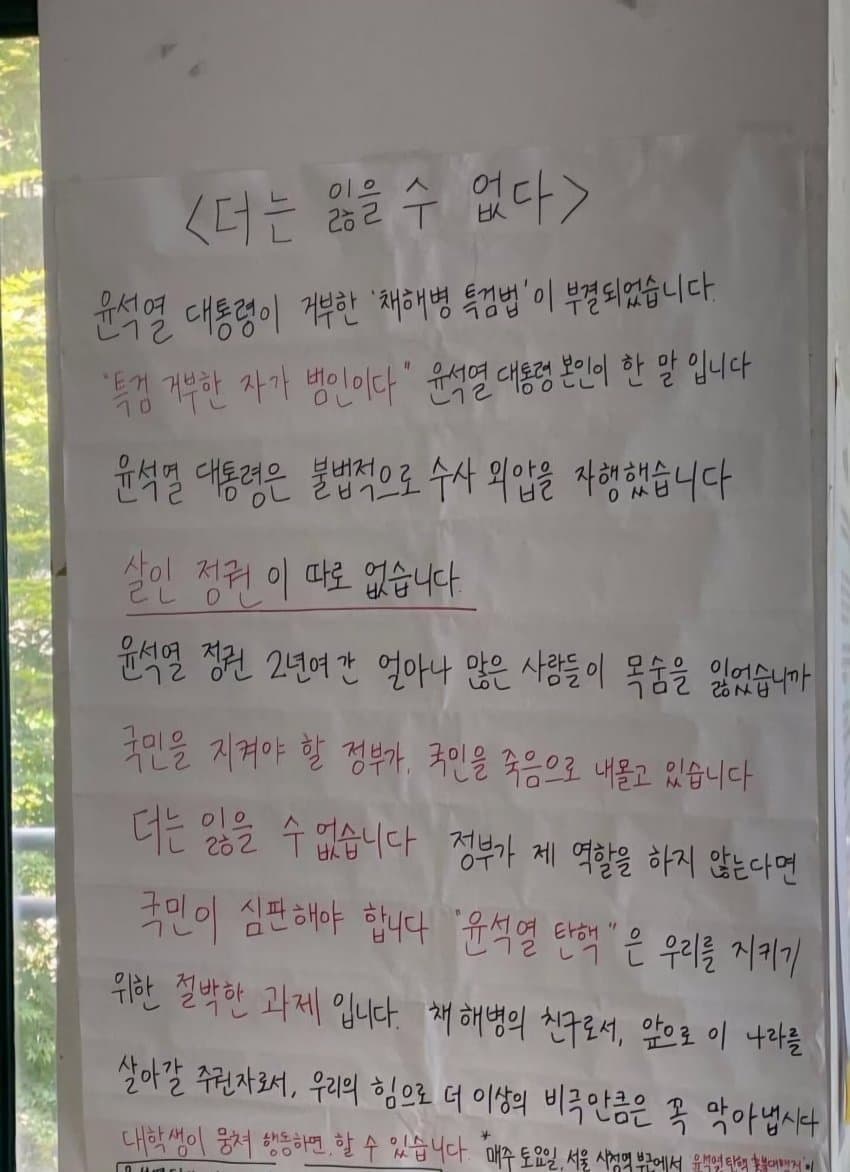 <더는 잃을 수 없다>
윤석열 대통령이 거부한 '채해병 특검법'이 부결되었습니다.
"특검 거부한 자가 범인이다" 윤석열 대통령 본인이 한 말 입니다
윤석열 대통령은 불법적으로 수사 외압을 자행했습니다
살인 정권이 따로 없습니다.
윤석열 정권 2년여간 얼마나 많은 사람들이 목숨을 잃었습니까
국민을 지켜야 할 정부가, 국민을 죽음으로 내몰고 있습니다
더는 잃을 수 없습니다 정부가 제 역할을 하지 않는다면
국민이 심판해야 합니다 "윤석열 탄핵"은 우리를 지키기
위한 절박한 과제입니다. 채 해병의 친구로서, 앞으로 이 나라를
살아갈 주권자로서, 우리의 힘으로 더 이상의 비극만큼은 꼭 막아냅시다
대학생이 뭉쳐 행동하면, 할 수 있습니다. *매주 토요일, 서울 시청역 밖에서 윤석열 탄핵